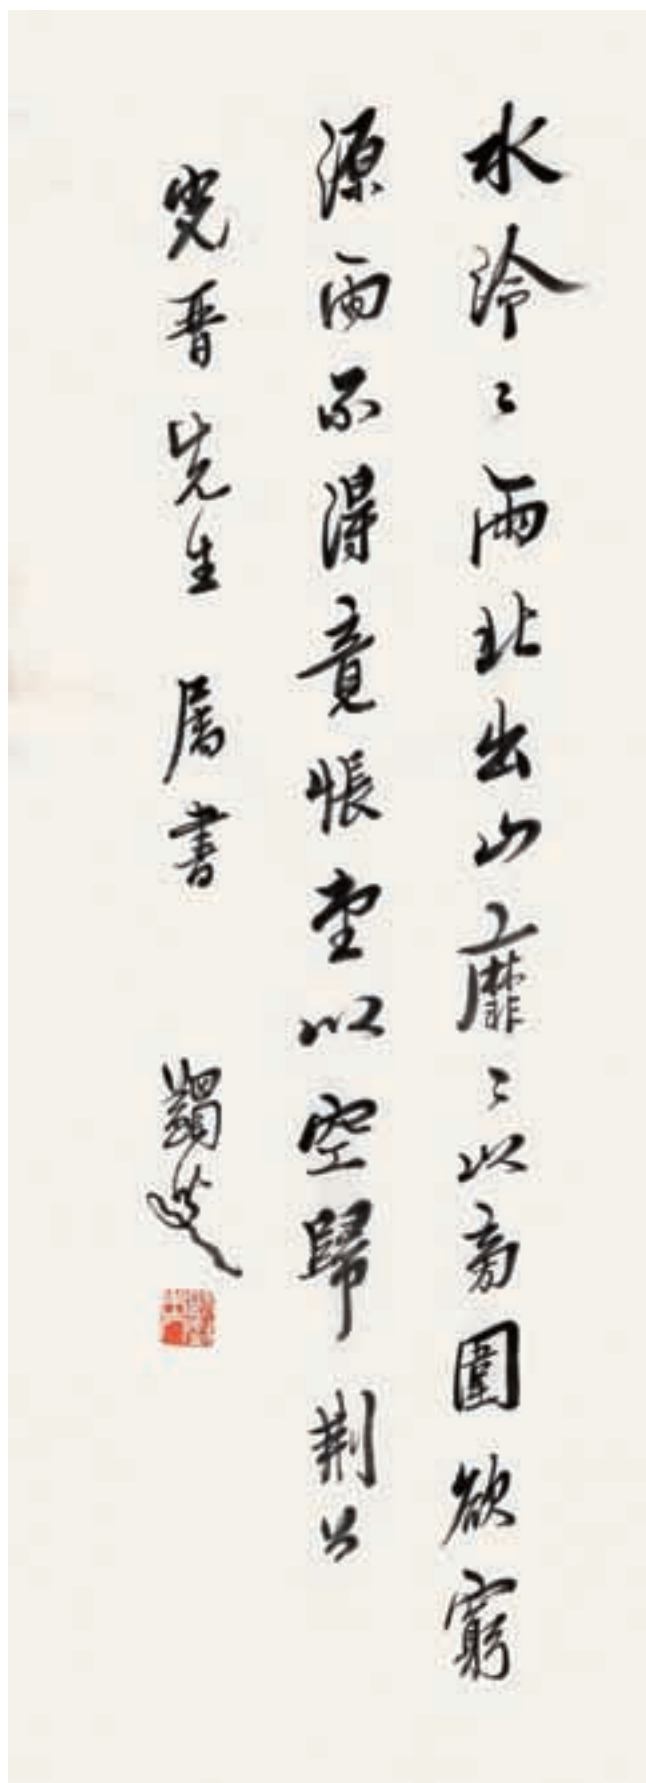 水泠〻而北出山靡〻以旁圍欲窮
源而不得竟悵望以空歸 荆公
晋先生 属書 蠲叟